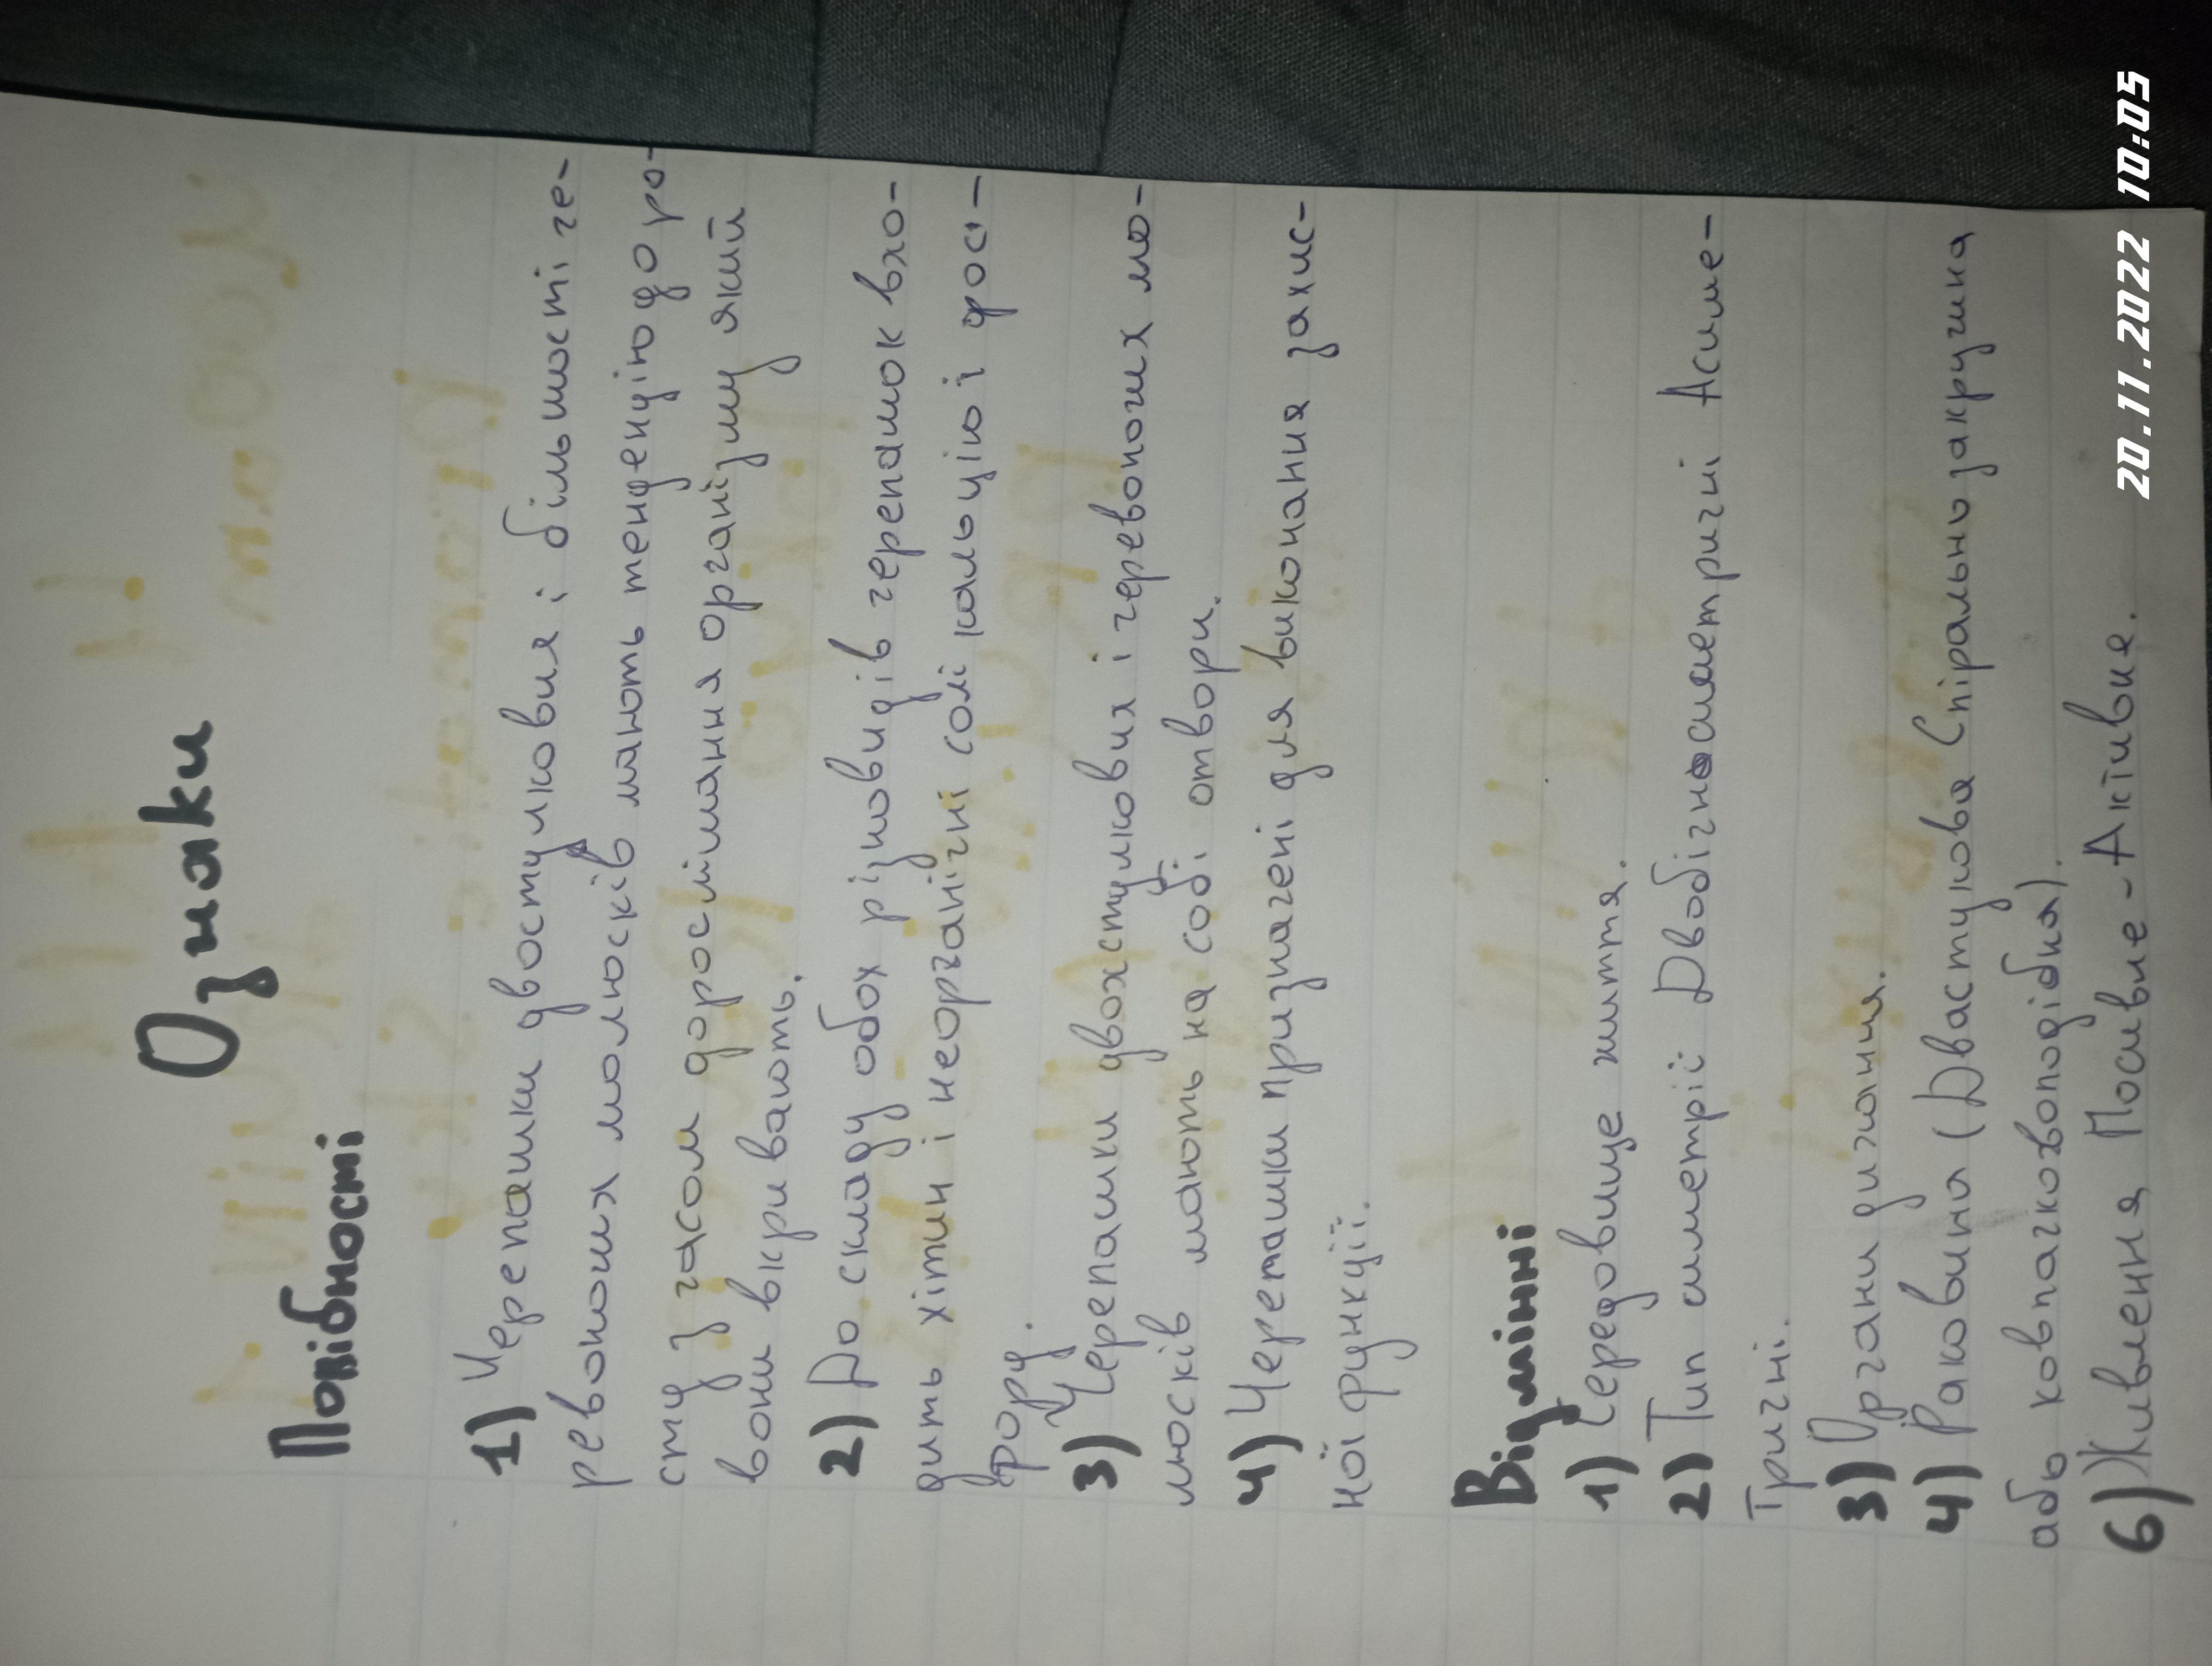 Ознаки
Повібності
1) Черепашки двостулковия і більшості че-
ревоногих молюсків мають тенденцію до ро-
сту з часом дорослішання організму який
вони вкривають.
2) До складу обох різновидів черепашок вхо-
дить хітин і неорганігні солі кальцію і фос-
фору.
3) Черепашки двохстулкових і червоногих мо-
люсків мають на собі отвори.
4) Черепашки призначені для виконання захис-
ної функції.
Відмінні
1) Середовище життя.
2) Тип симетрії Двобічносиметричні Асиме-
тричні.
3) Органи дихання.
4) Раковина (Двастукова Спірально закручина
або ковпачковоподібна).
6) Живлення Пасивне - Активне.
20.11.2022 10:05